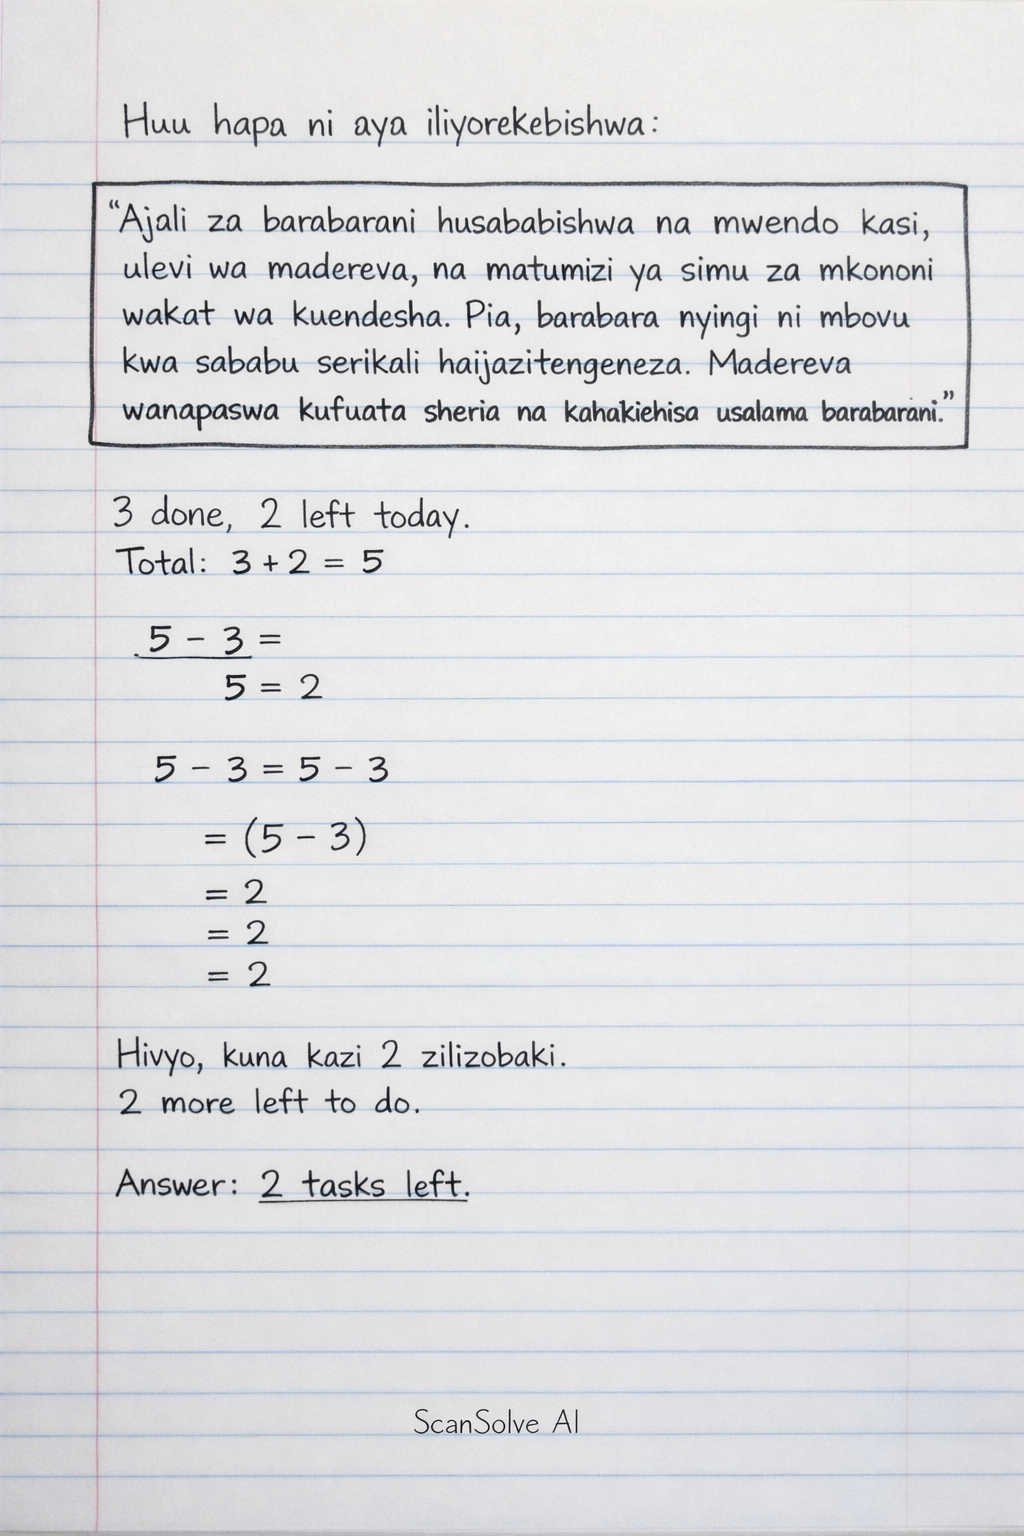 Huu hapa ni aya iliyorekebishwa:
"Ajali za barabarani husababishwa na mwendo kasi,
ulevi wa madereva, na matumizi ya simu za mkononi
wakat wa kuendesha. Pia, barabara nyingi ni mbovu
kwa sababu serikali haijazitengeneza. Madereva
wanapaswa kufuata sheria na kahakiehisa usalama barabarani."
3 done, 2 left today.
Total: 3 + 2 = 5
5 - 3 =
5 = 2
5 - 3 = 5 - 3
= (5 - 3)
= 2
= 2
= 2
Hivyo, kuna kazi 2 zilizobaki.
2 more left to do.
Answer: 2 tasks left.
ScanSolve AI